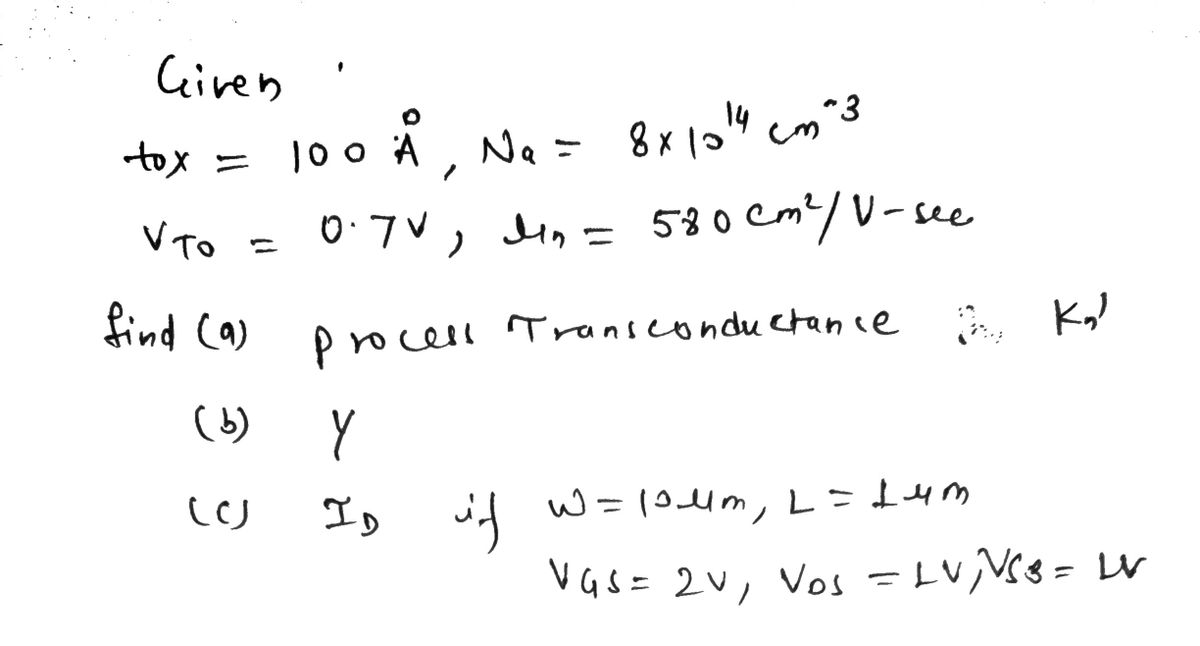 Given
tox = 100 Å, Na = 8x10¹⁴ cm⁻³
VTO = 0.7V, μn = 580 cm²/V-sec
find (a) process Transconductance Kn'
(b) γ
(c) ID if W=10μm, L=1μm
VGS= 2V, VDS =1V, VSB= 1V